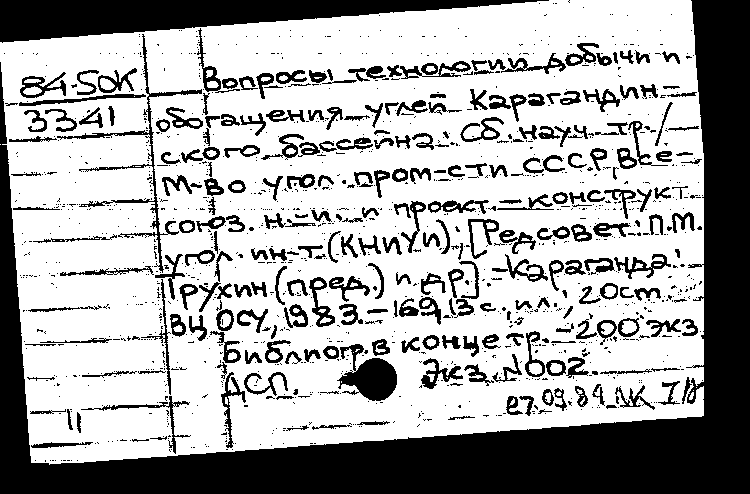 84-5ДК Вопросы технологии добычи и
3341 обогащения углей Карагандин-
ского бассейна: Сб. науч. тр./
М-во угол. пром-сти СССР, Все-
союз. н.-и. и проект.-конструкт.
угол. ин-т (КНИУИ); [Редсовет: П.М.
Трухин (пред.) и др.]. -Караганда:
ВЦ ОСУ, 1983.-169,13 с., ил.; 20см.
Библиогр. в конце тр. -200 экз.
ДСП. Экз. №002.
27.09.84
11